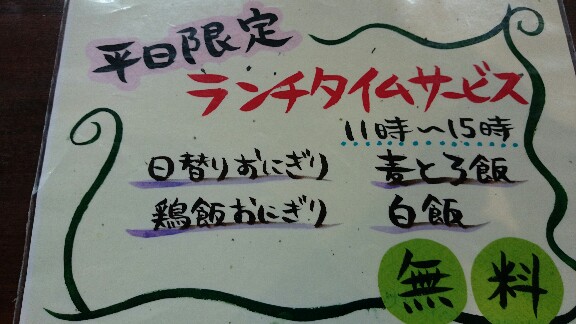 平日限定
ランチタイムサービス
11時〜15時
日替りおにぎり 麦とろ飯
鶏飯おにぎり 白飯
無料